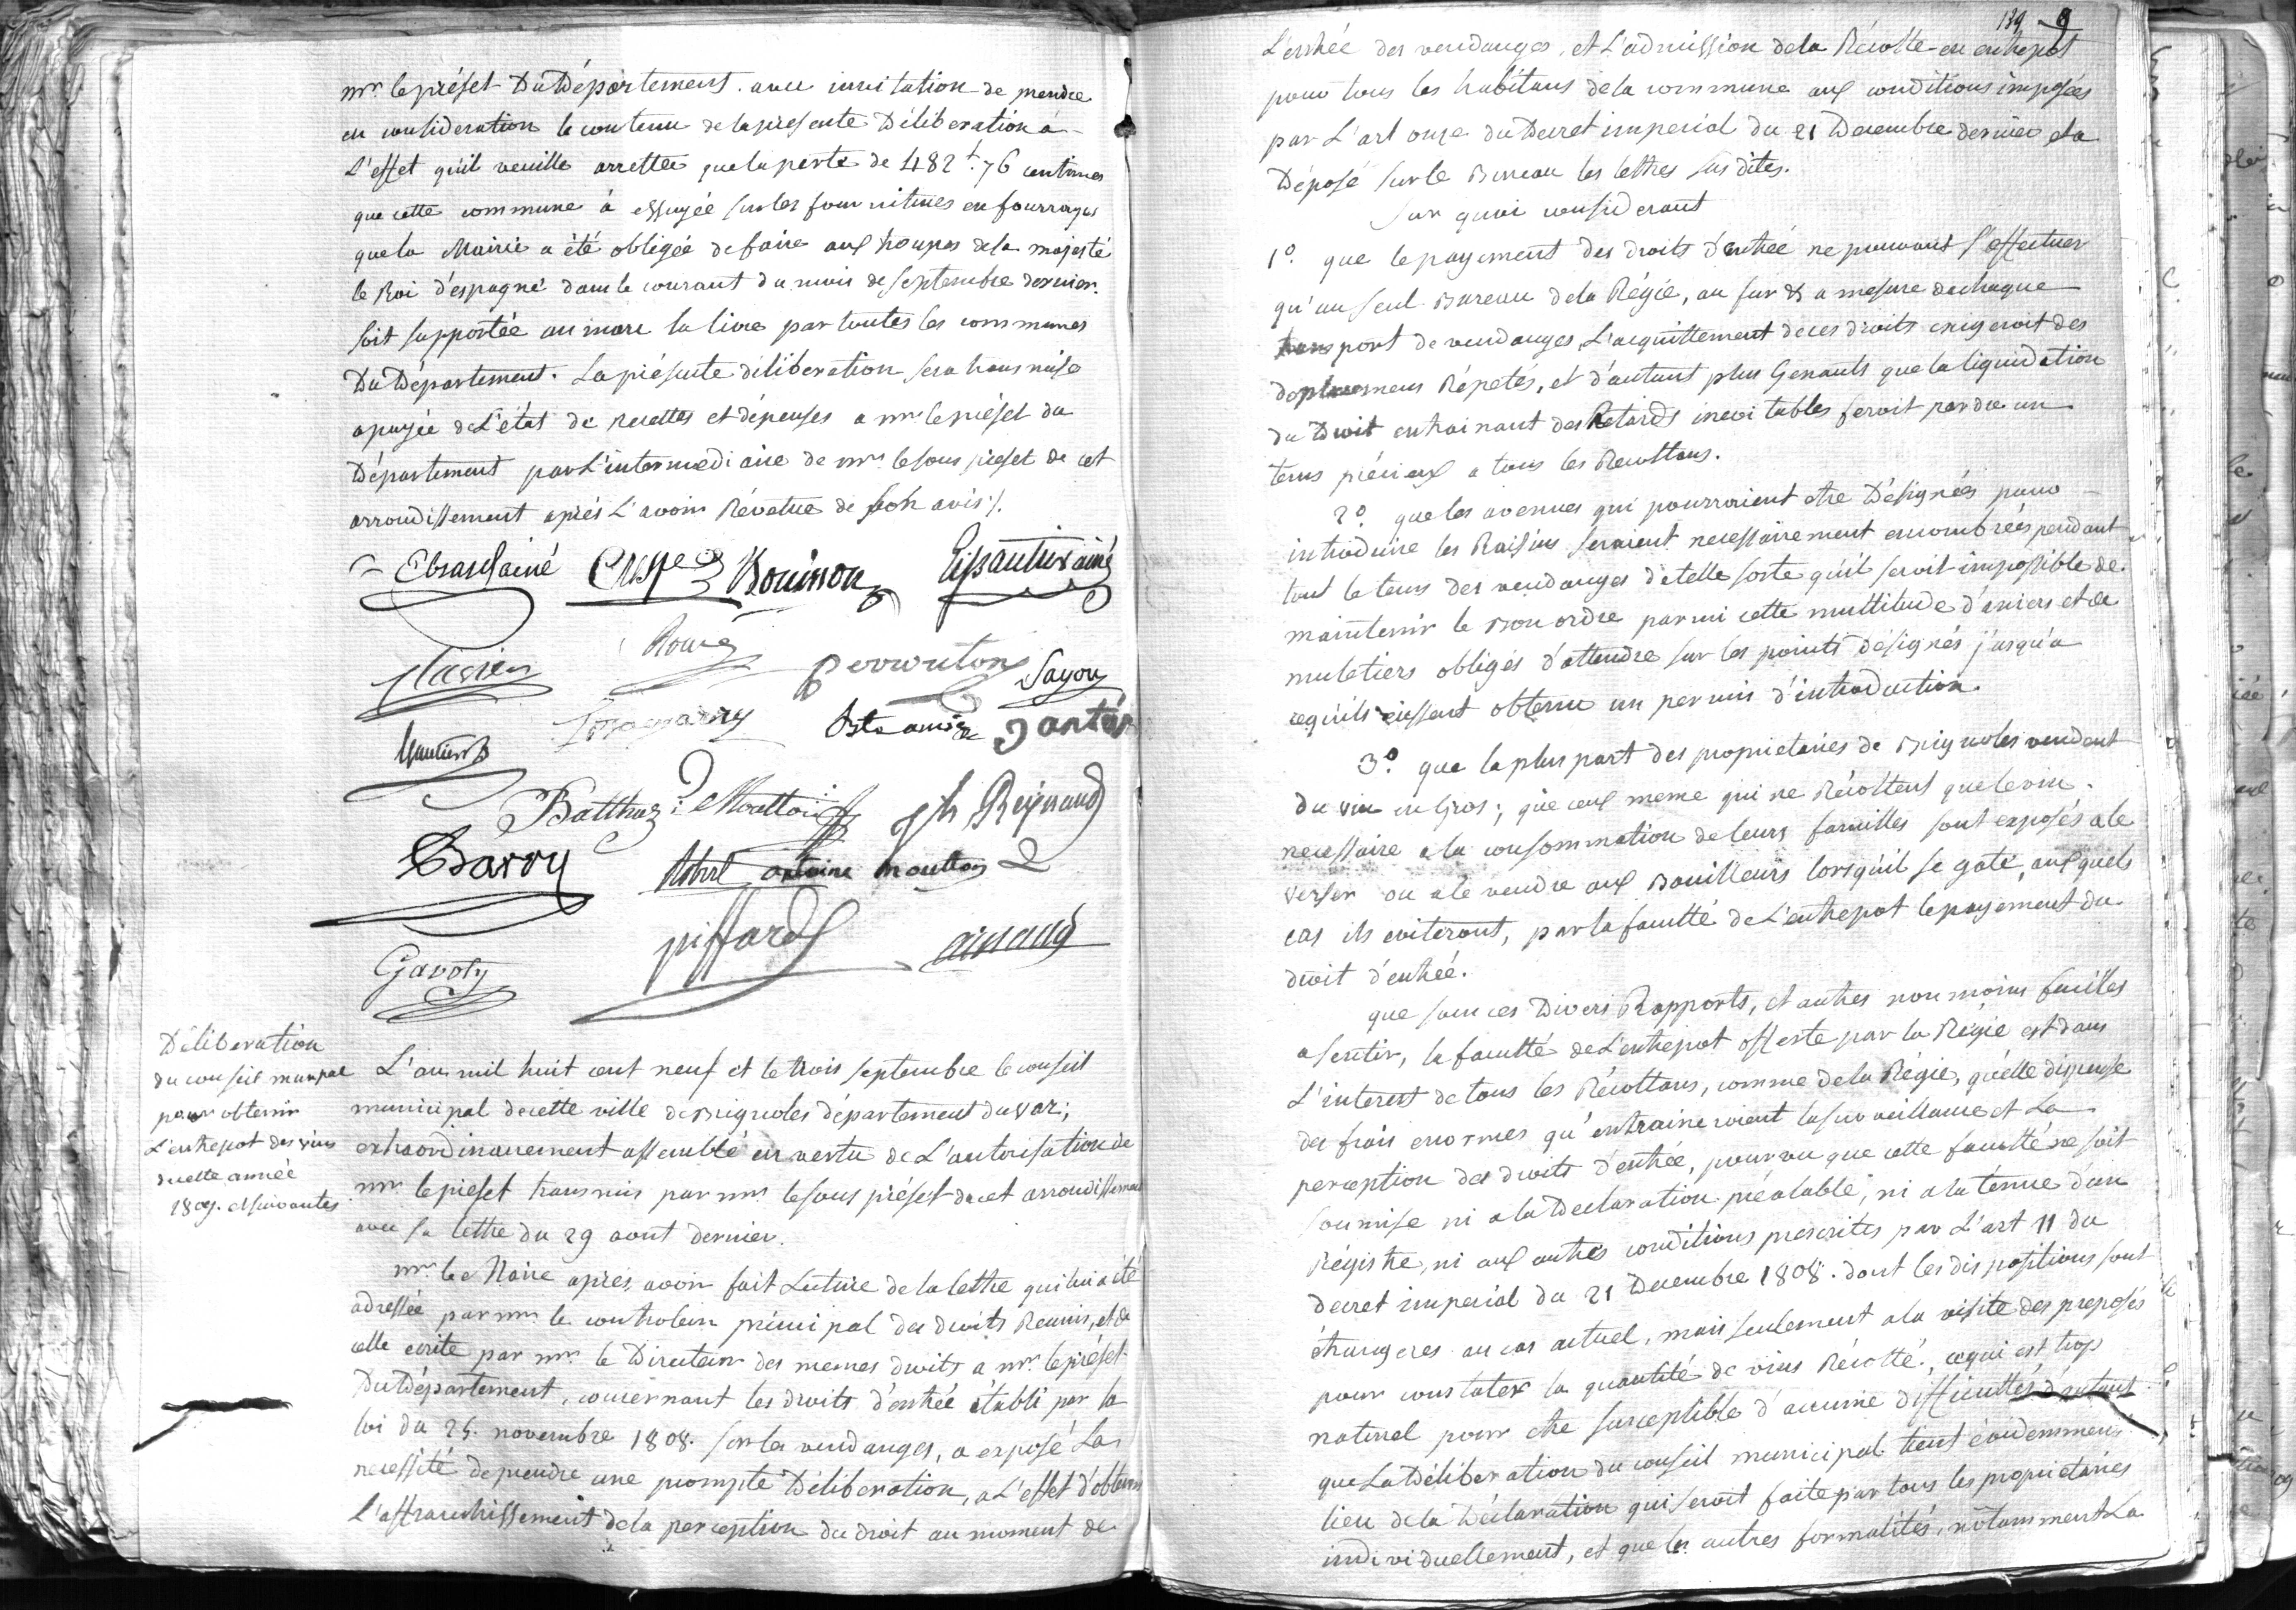 mr. le préfet Du Département. avec invitation de prendre
en consideration le contenu de la presente Déliberation a
L'effet qu'il veuille arretter que la perte de 482 t. 76 centimes
que cette commune à essuyée sur les fournitures en fourrages
que la Mairie a été obligée de faire aux troupes de la majesté
le Roi d'espagne dans le courant du mois de septembre dernier.
soit supportée au marc la livre par toutes les communes
Du Département. La présente déliberation sera transmise
apuyée de L'état de recettes et dépenses a mr. le préfet du
Département par L'intermediaire de mr. le sous préfet de cet
arrondissement après L'avoir Révetue de son avis ./.
Ebrard ainé Crispe Bouisson
Roux
Sayou
Gautier
Balthaz: Moutton jh Reynaud
Barry Robert antoine moutton
Gavoty piffard ainaud
Déliberation
du conseil munpal
pour obtenir
L'entrepot des vins
de cette année
1809. et suivantes
L'an mil huit cent neuf et le trois septembre le conseil
municipal de cette ville de Brignoles département du var;
extraordinairement assemblé en vertu de L'autorisation de
mr. le préfet transmis par mr. le sous préfet de cet arrondissement
avec sa lettre du 29 aout dernier.
mr. le Maire après avoir fait Lecture de la lettre qui lui a été
adressée par mr. le controleur principal des droits Reunis, et de
celle ecrite par mr. le Directeur des memes droits a mr. le préfet
Du Département, concernant les droits d'entrée établi par la
loi du 25. novembre 1808. sur les vendanges, a exposé La
necessité de prendre une prompte Déliberation, a L'effet d'obtenir
l'affranchissement de la perception du droit au moment de
139
L'entrée des vendanges, et L'admission de la Récolte en entrepot
pour tous les habitans de la commune aux conditions imposées
par L'art onze du Decret imperial du 21 Decembre dernier et a
Déposé sur le Bureau les lettres sus dites.
Sur quoi considerant
1o. que le payement des droits d'entrée ne pouvant s'effectuer
qu'au seul Bureau de la Régie, au fur & a mesure de chaque
transport de vendanges, L'acquittement de ces droits exigeroit des
deplacemens Répetés, et d'autant plus Genants que la liquidation
du Droit entrainant des Retards inevitables feroit perdre un
tems précieux a tous les Recoltans.
2o. que les avenues qui pourroient etre Désignées pour
introduire les Raisins seraient necessairement encombrées pendant
tout le tems des vendanges de telle sorte qu'il seroit impossible de
maintenir le Bon ordre parmi cette multitude d'aniers et de
muletiers obligés d'attendre sur les points designés jusqu'a
ce qu'ils eussent obtenu un permis d'introduction.
3o. que la plus part des proprietaires de Brignoles vendent
du vin en Gros; que ceux meme qui ne Récoltent que le vin
necessaire a la consommation de leurs familles sont exposés a le
verser ou a le vendre aux Bouilleurs lorsqu'il se gate, aux quels
cas ils eviteront, par la faculté de L'entrepot le payement du
droit d'entrée.
que sous ces Divers Rapports, et autres non moins faciles
a sentir, la faculté de L'entrepot offerte par la Régie est dans
L'interest de tous les Récoltans, comme de la Régie, qu'elle dispense
des frais enormes qu'entraineroient la surveillance et La
perception des droits d'entrée, pourvu que cette faculté ne soit
soumise ni a la Declaration préalable, ni a la ténue d'un
Régistre, ni aux autres conditions prescrites par L'art 11 du
decret imperial du 21 Decembre 1808. dont les dispositions sont
étrangeres au cas actuel, mais seulement a la visite des preposés
pour constater la quantité de vins Récolté., ce qui est trop
naturel pour etre susceptible d'aucune difficultés d'autant
que La Déliberation du conseil municipal tient évidemment
lieu de la Déclaration qui seroit faite par tous les proprietaires
individuellement, et que les autres formalités, notamment La